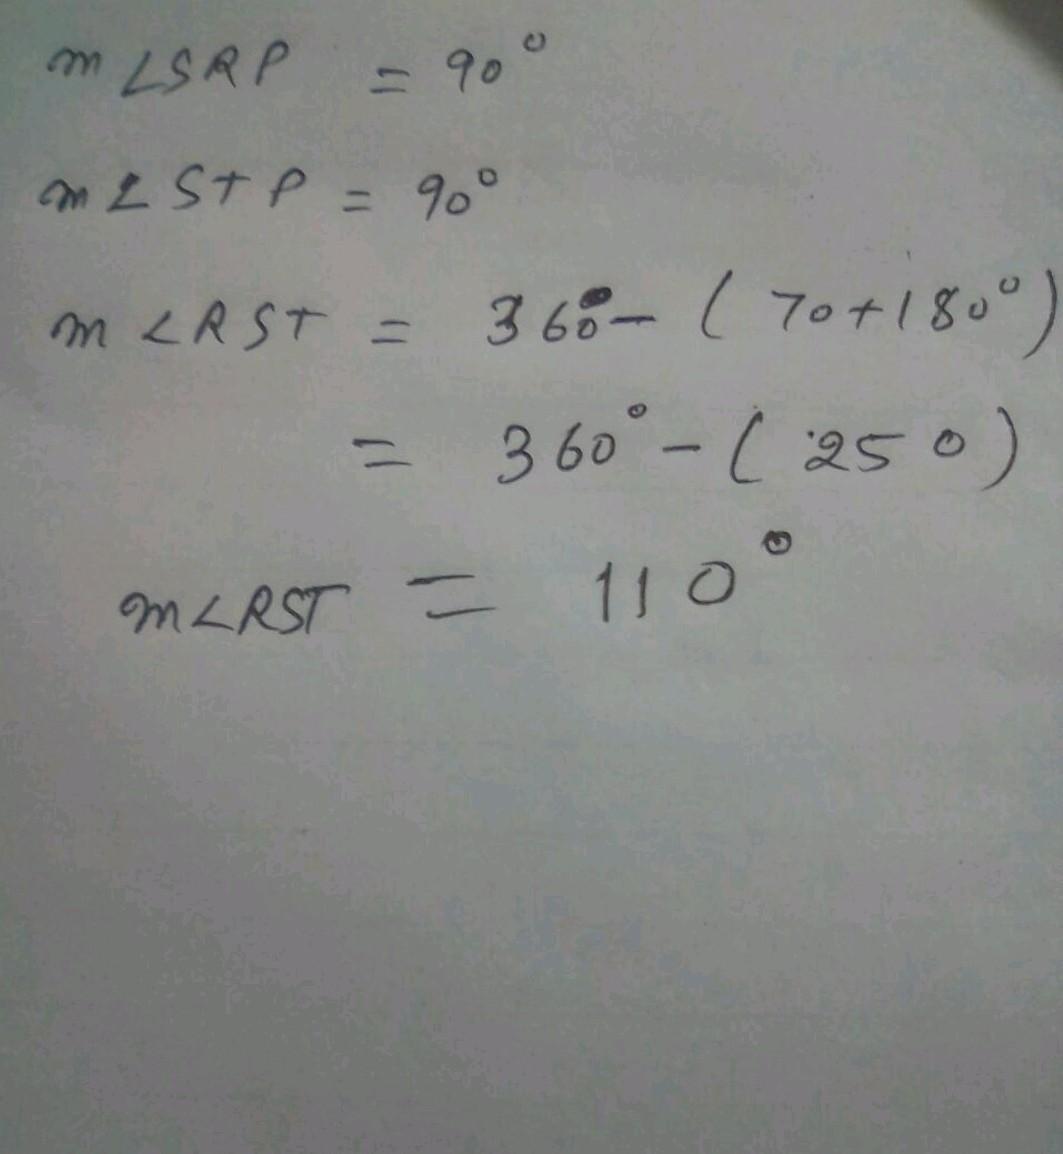 m∠SRP = 90°
m∠STP = 90°
m<RST = 360°- (70+180°)
= 360°-(250)
m<RST = 110°